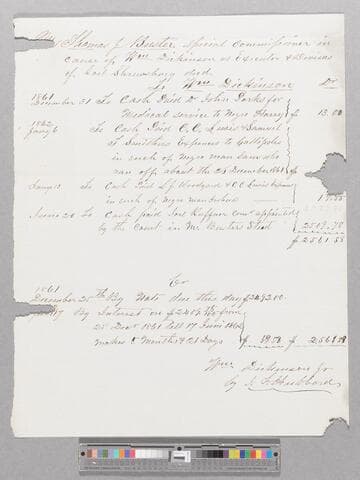 Thomas J. Buster, special commissioner in
cause of Wm Dickinson as Executor & Devisees
of Joel Shrewsbury decd
To Wm Dickinson Dr
1861
December 31 To Cash Paid Dr John Parks for
Medical service to Negro Harry $ 13.00
1862
Jany 6 To Cash Paid C.C. Lewis & Samuel
A Smithers Expenses to Gallipolis
in search of Negro man Sam who
ran off about the 25 December 1861
Jany 13 To Cash Paid L.J. Woodyard & C C Lewis
in search of Negro man
June 20 To Cash paid Joel Ruffner comr appointed
by the Court in Mr Busters Stead 2509.78
$ 2561.58
Cr
1861
December 25th By Note due this day $
17 By Interest on from
25 Decr 1861 till 17 June 1862
makes 5 Months & 21 Days
Wm Dickinson Jr
by J. Hubbard